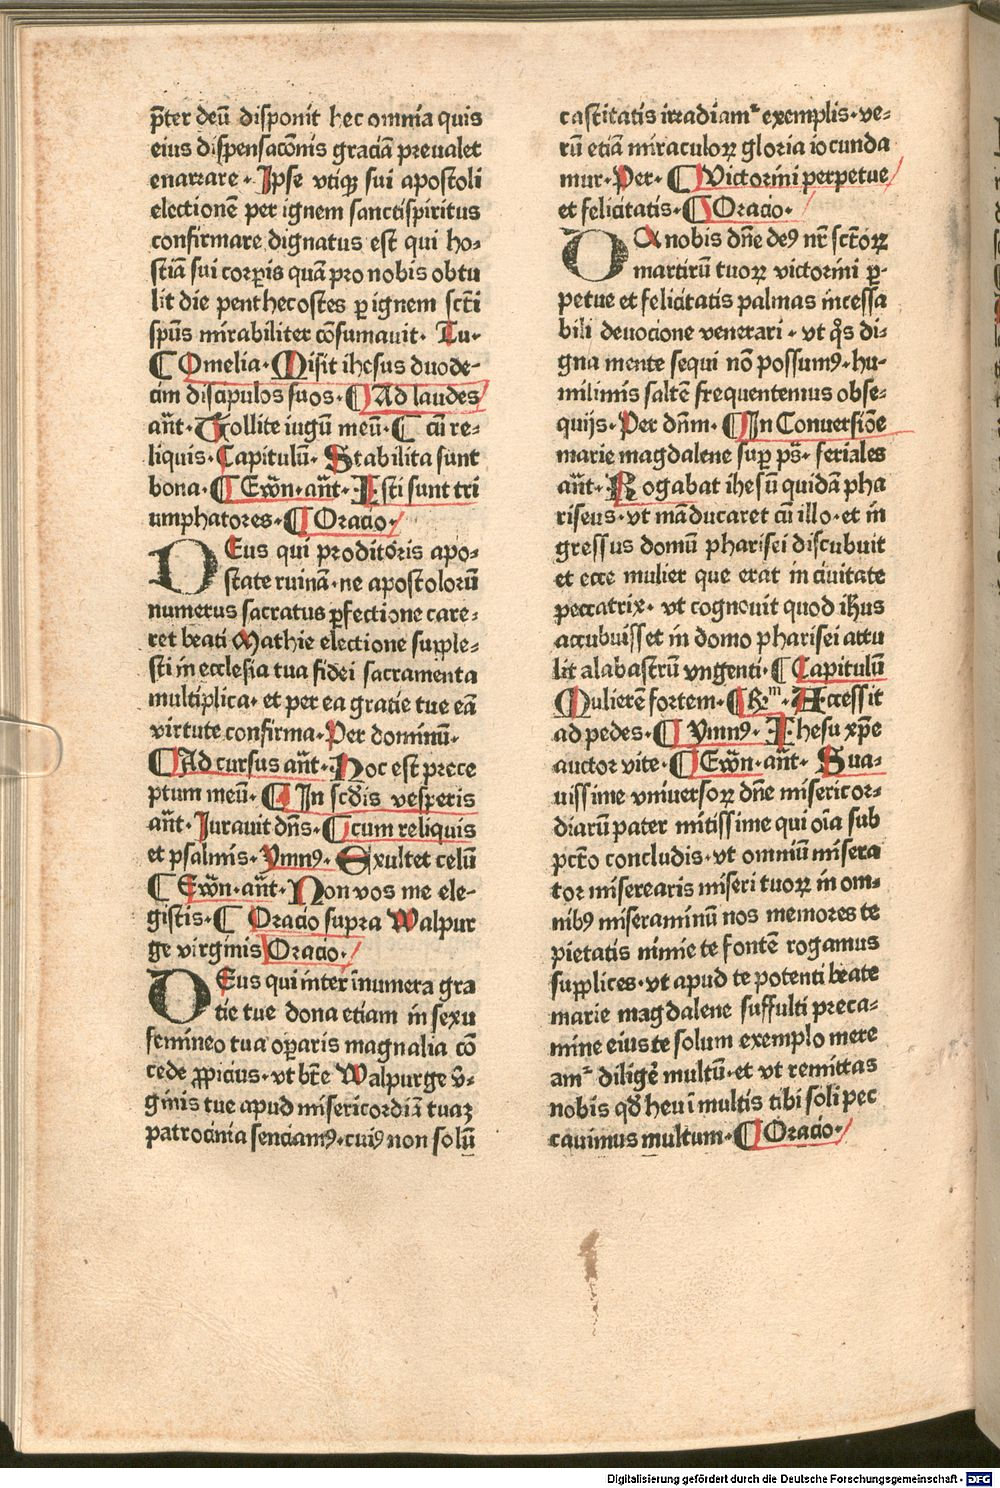 p̄ter deū disponit hec omnia quis
eius dispensacōnis graciā preualet
enarrare · Ipse vtiqꝫ sui apostoli
electionē per ignem sanctispiritus
confirmare dignatus est qui ho⸗
stiā sui corꝑis quā pro nobis obtu
lit die penthecostes ꝑ ignem sct̄i
spūs mirabiliter cōsumauit · Tu·
¶ Omelia · Misit ihesus duode⸗
cim discipulos suos · ¶ Ad laudes
an̄t · Tollite iugū meū · ¶ cū re⸗
liquis · Capitulū · Stabilita sunt
bona · ¶ Ewn̄ · an̄t · Isti sunt tri
umphatores · ¶ Oracio ·
DEus qui proditoris apo⸗
state ruinā · ne apostolorū
numerus sacratus ꝑfectione care⸗
ret beati Mathie electione supple⸗
sti in ecclesia tua fidei sacramenta
multiplica · et per ea gratie tue eā
virtute confirma · Per dominū ·
¶ Ad cursus an̄t · Hoc est prece
ptum meū · ¶ In scd̄is vesperis
an̄t · Iurauit dn̄s · ¶ cum reliquis
et psalmis · Ymnꝰ · Exultet celū
¶ Ewn̄ · an̄t · Non vos me ele⸗
gistis · ¶ Oracio supra Walpur
ge virginis Oracio ·
DEus qui inter īnumera gra
tie tue dona etiam in sexu
femineo tua oꝑaris magnalia cō
cede ꝓpicius · vt btē Walpurge v̄⸗
ginis tue apud misericordiā tuaꝫ
patrocinia senciamꝰ · cuiꝰ non solū
castitatis irradiamᷣ exemplis · ve⸗
rū etiā miraculoꝝ gloria iocunda
mur · Per · ¶ Victorini perpetue
et felicitatis · ¶ Oracio ·
DA nobis dn̄e deꝰ nr̄ sct̄oꝝ
martirū tuoꝝ victorini ꝑ⸗
petue et felicitatis palmas incessa
bili deuocione venerari · vt qͦs di⸗
gna mente sequi nō possumꝰ · hu⸗
milimis saltē frequentemus obse⸗
quijs · Per dn̄m · ¶ In Conuersiōe
marie magdalene suꝑ ps̄ · feriales
an̄t · Rogabat ihesū quidā pha
riseus · vt māducaret cū illo · et in
gressus domū pharisei discubuit
et ecce mulier que erat in ciuitate
peccatrix · vt cognouit quod ih̄us
accubuisset in domo pharisei attu
lit alabastrū vngenti · ¶ Capitulū
Mulierē fortem · ¶ Rm̄ · Accessit
ad pedes · ¶ Ymnꝰ · Ihesu xp̄e
auctor vite · ¶ Ewn̄ · an̄t · Sua⸗
uissime vniuersoꝝ dn̄e misericor⸗
diarū pater mitissime qui oīa sub
pctō concludis · vt omniū misera
tor miserearis miseri tuoꝝ in om⸗
nibꝰ miseraminū nos memores te
pietatis nimie te fontē rogamus
supplices · vt apud te potenti beate
marie magdalene suffulti preca⸗
mine eius te solum exemplo mere
amᷣ diligē multū · et vt remittas
nobis qd̄ heu ī multis tibi soli pec
cauimus multum · ¶ Oracio ·
Digitalisierung gefördert durch die Deutsche Forschungsgemeinschaft - DFG